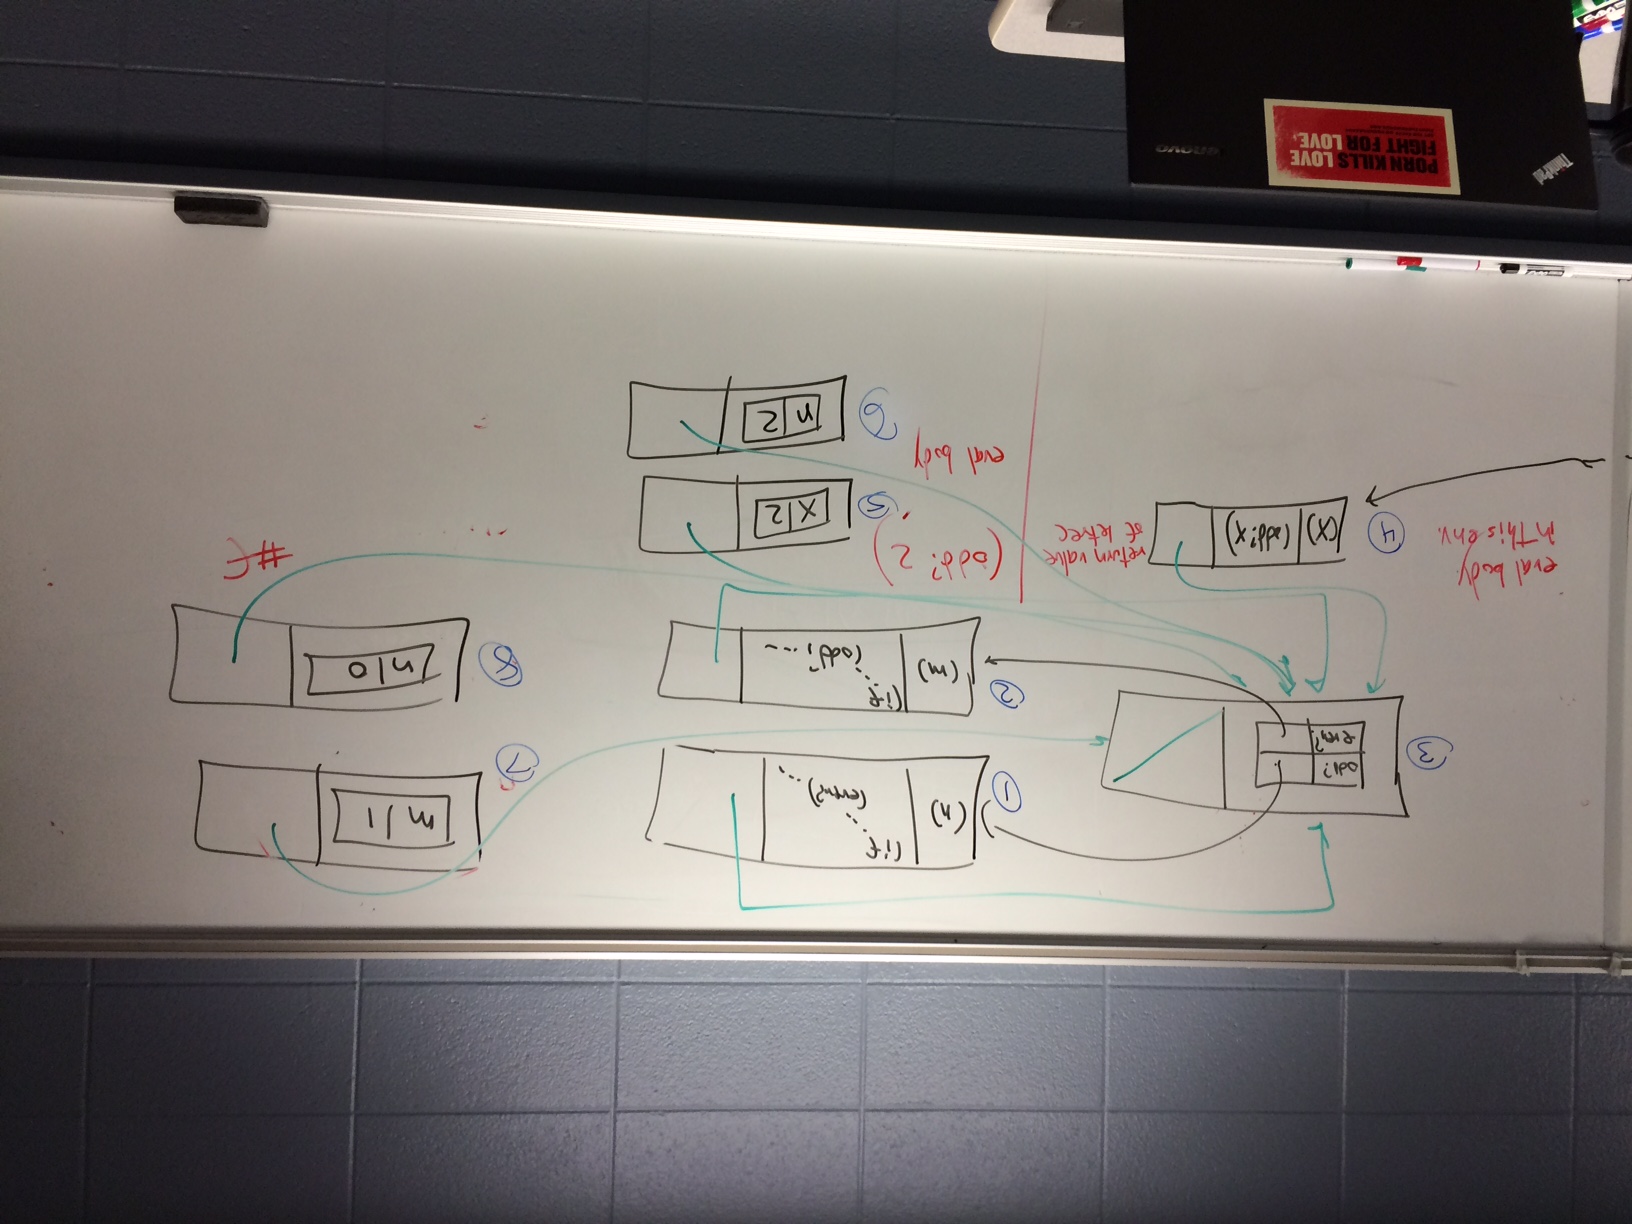 ③
odd?
even?
①
(n)
(if
(even?
...
⑦
m | 1
②
(m)
(if
(odd? ...
⑧
n | 0
#f
eval body
in this env.
④
(x)
(odd? x)
return value
of letrec
(odd? 2)
⑤
x | 2
eval body
⑥
n | 2
ThinkPad
lenovo
PORN KILLS LOVE
FIGHT FOR LOVE.